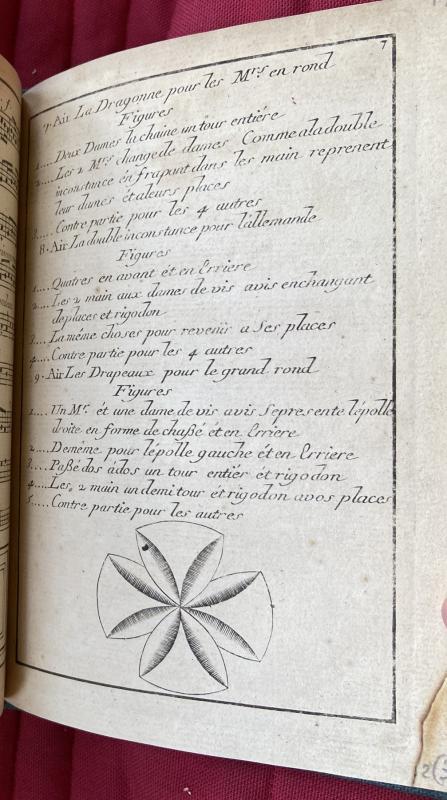 7
7. Air La Dragonne pour les Mrs. en rond
Figures
1.... Deux Dames la chaine un tour entiére
2.... Les 2 Mrs. change de dames Comme a la double
inconstance en frapant dans les main reprenent
leur dames et a leurs places
3.... Contre partie pour les 4 autres
8. Air La double inconstance pour l'allemande
Figures
1.... Quatres en avant ét en Erriere
2.... Les 2 main aux dames de vis avis en changant
de places et rigodon
3.... La méme choses pour revenir a Ses places
4.... Contre partie pour les 4 autres
9. Air Les Drapeaux pour le grand rond
Figures
1.... Un Mr. ét une dame de vis avis Se presente lépolle
droite en forme de chaßé ét en Erriere
2.... Deméme pour lépolle gauche ét en Erriere
3.... Paßé dos á dos un tour entiér ét rigodon
4.... Les 2 main un demi tour et rigodon avos places
5.... Contre partie pour les autres